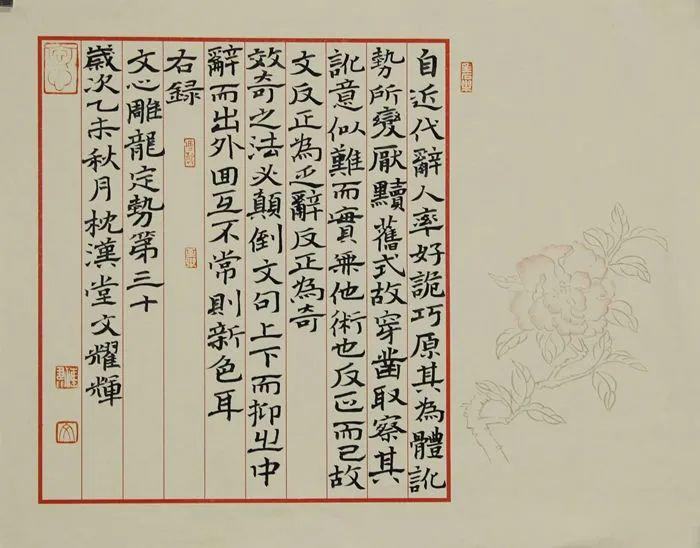 自近代辭人率好詭巧原其為體訛
勢所變厭黷舊式故穿鑿取察其
訛意似難而實無他術也反正而已故
文反正為乏辭反正為奇
效奇之法必顛倒文句上下而抑之中
辭而出外回互不常則新色耳
右録
文心雕龍定勢第三十
歲次乙未秋月枕漢堂文耀輝